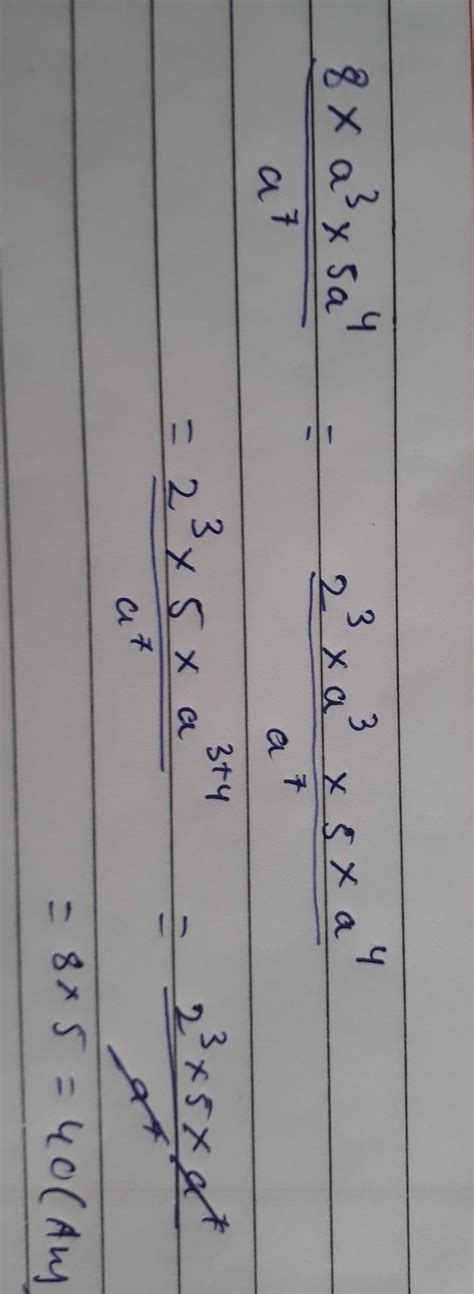 8 × a³ × 5a⁴ / a⁷ = 2³ × a³ × 5 × a⁴ / a⁷
= 2³ × 5 × a³⁺⁴ / a⁷ = 2³ × 5 × a⁷ / a⁷
= 8 × 5 = 40 (Ans